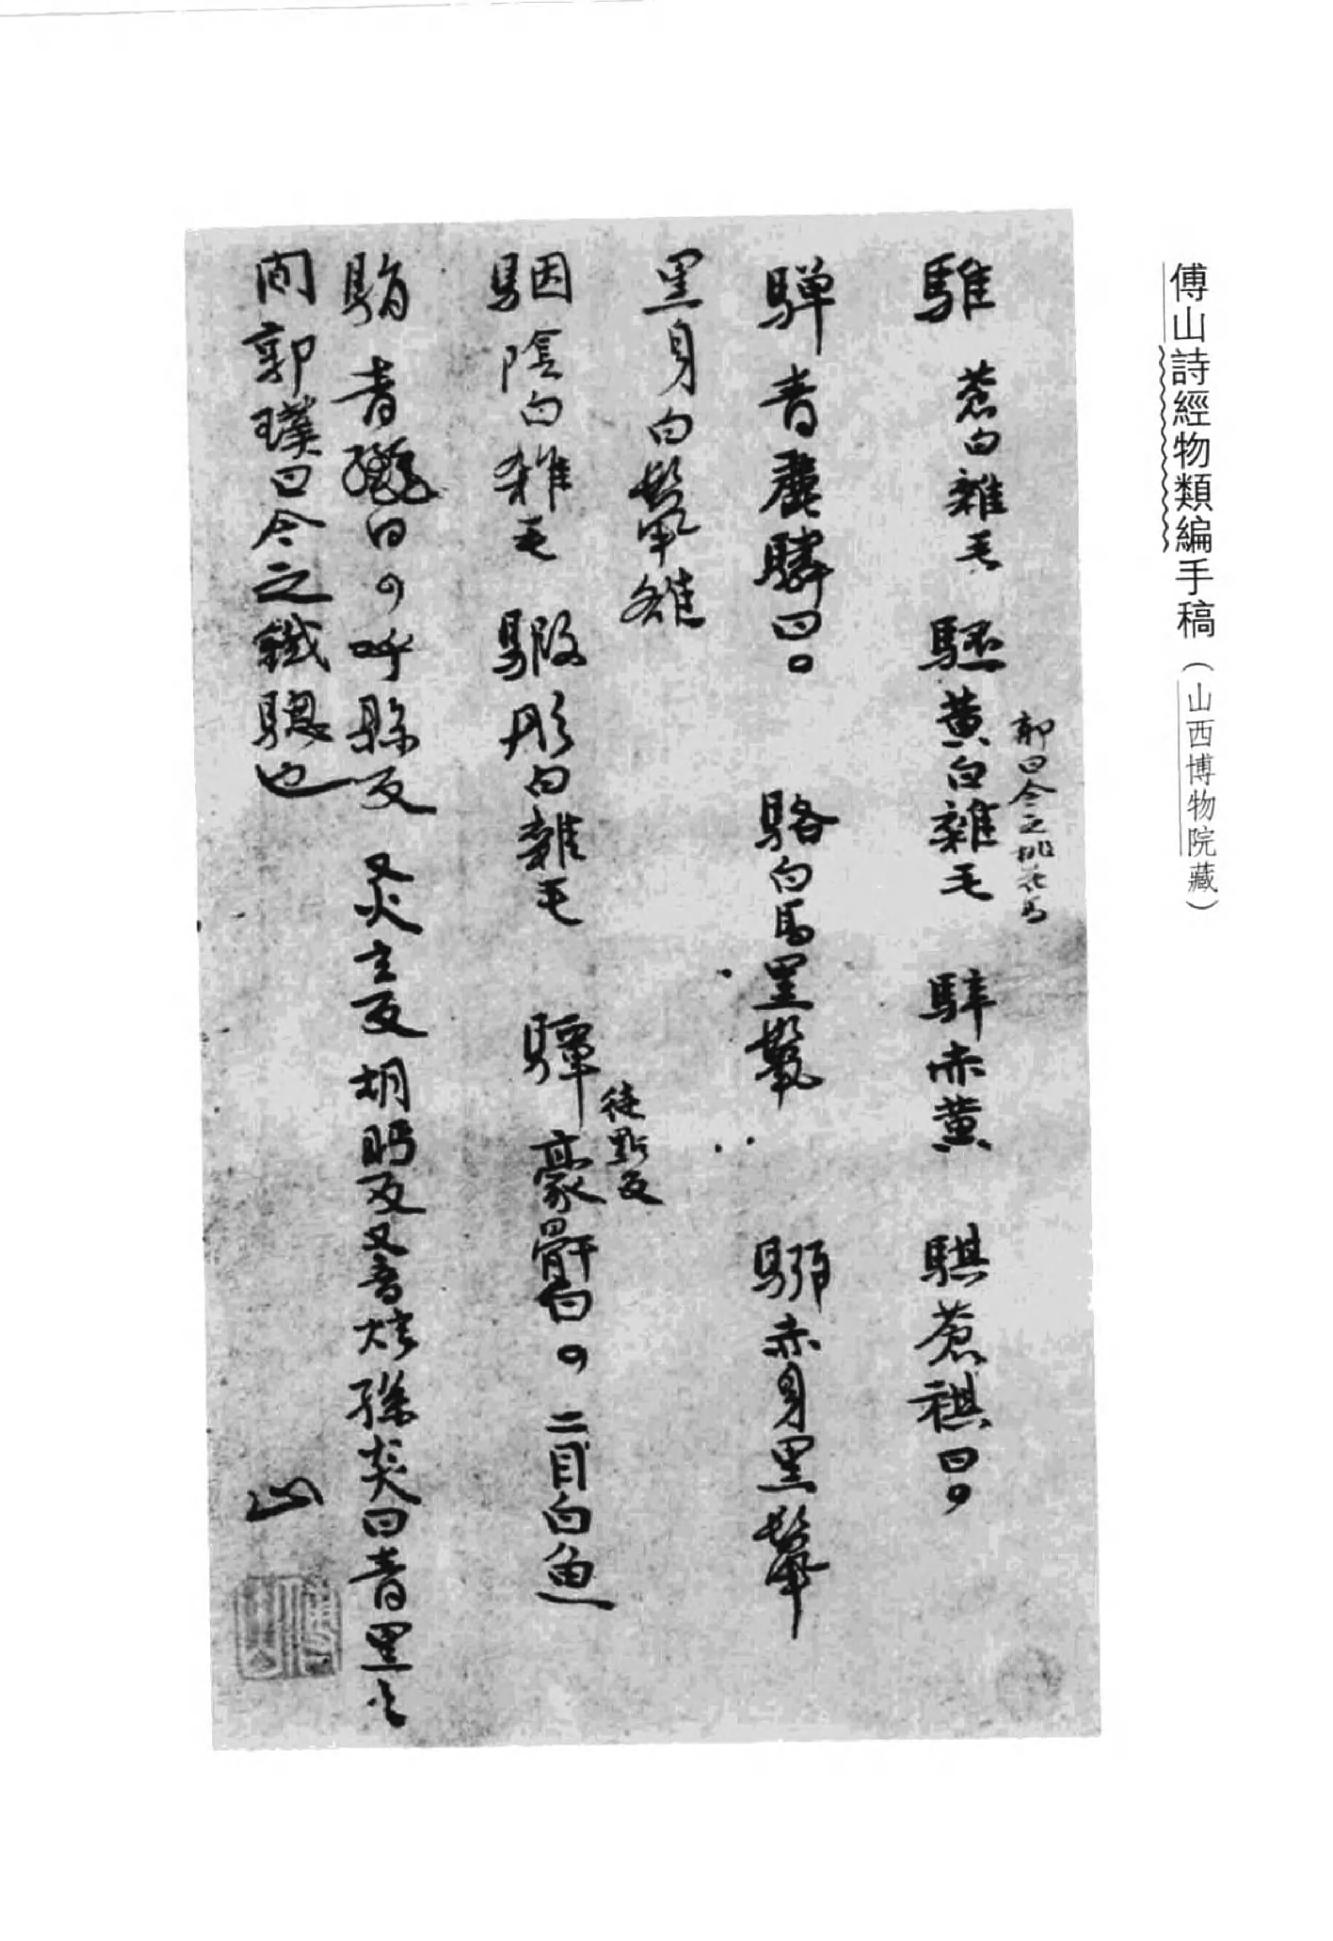 傅山詩經物類編手稿（山西博物院藏）
騅 蒼白雜毛 駓黄白雜毛 騂赤黄 騏蒼祺曰。
郭曰今之桃花馬
驒青驪驎曰。 駱白馬黑鬣 騮赤身黑鬣
黑身白鬣雒
駰陰白雜毛 騢彤白雜毛 驔豪骭白。二目白魚
徒點反
駽青驪曰。呼縣反 又火玄反 胡眄反又音炫孫炎曰青黑之
間郭璞曰今之鐵驄也
山